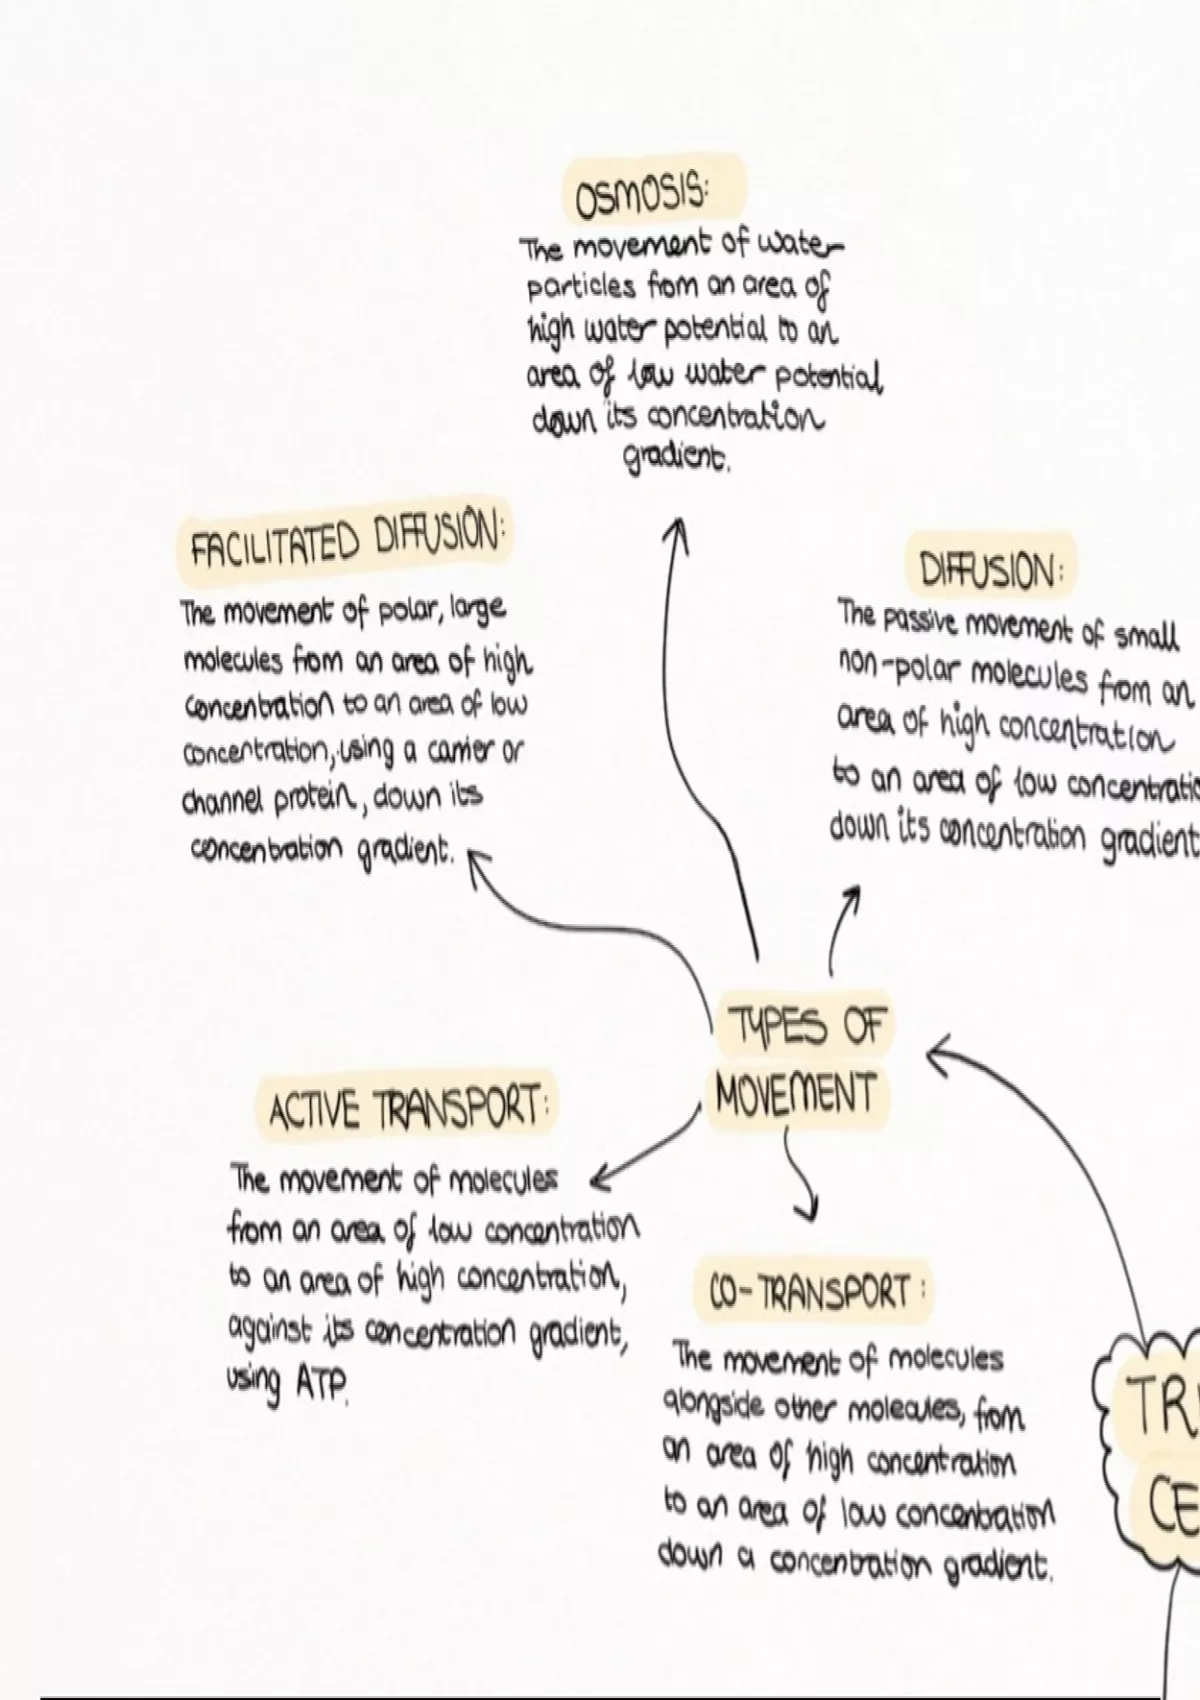 OSMOSIS:
The movement of water
particles from an area of
high water potential to an
area of low water potential
down its concentration
gradient.
FACILITATED DIFFUSION:
The movement of polar, large
molecules from an area of high
concentration to an area of low
concentration, using a carrier or
channel protein, down its
concentration gradient.
DIFFUSION:
The passive movement of small
non-polar molecules from an
area of high concentration
to an area of low concentratio
down its concentration gradient
TYPES OF
MOVEMENT
ACTIVE TRANSPORT:
The movement of molecules
from an area of low concentration
to an area of high concentration,
against its concentration gradient,
using ATP.
CO-TRANSPORT:
The movement of molecules
alongside other molecules, from
an area of high concentration
to an area of low concentration
down a concentration gradient.
TR
CE